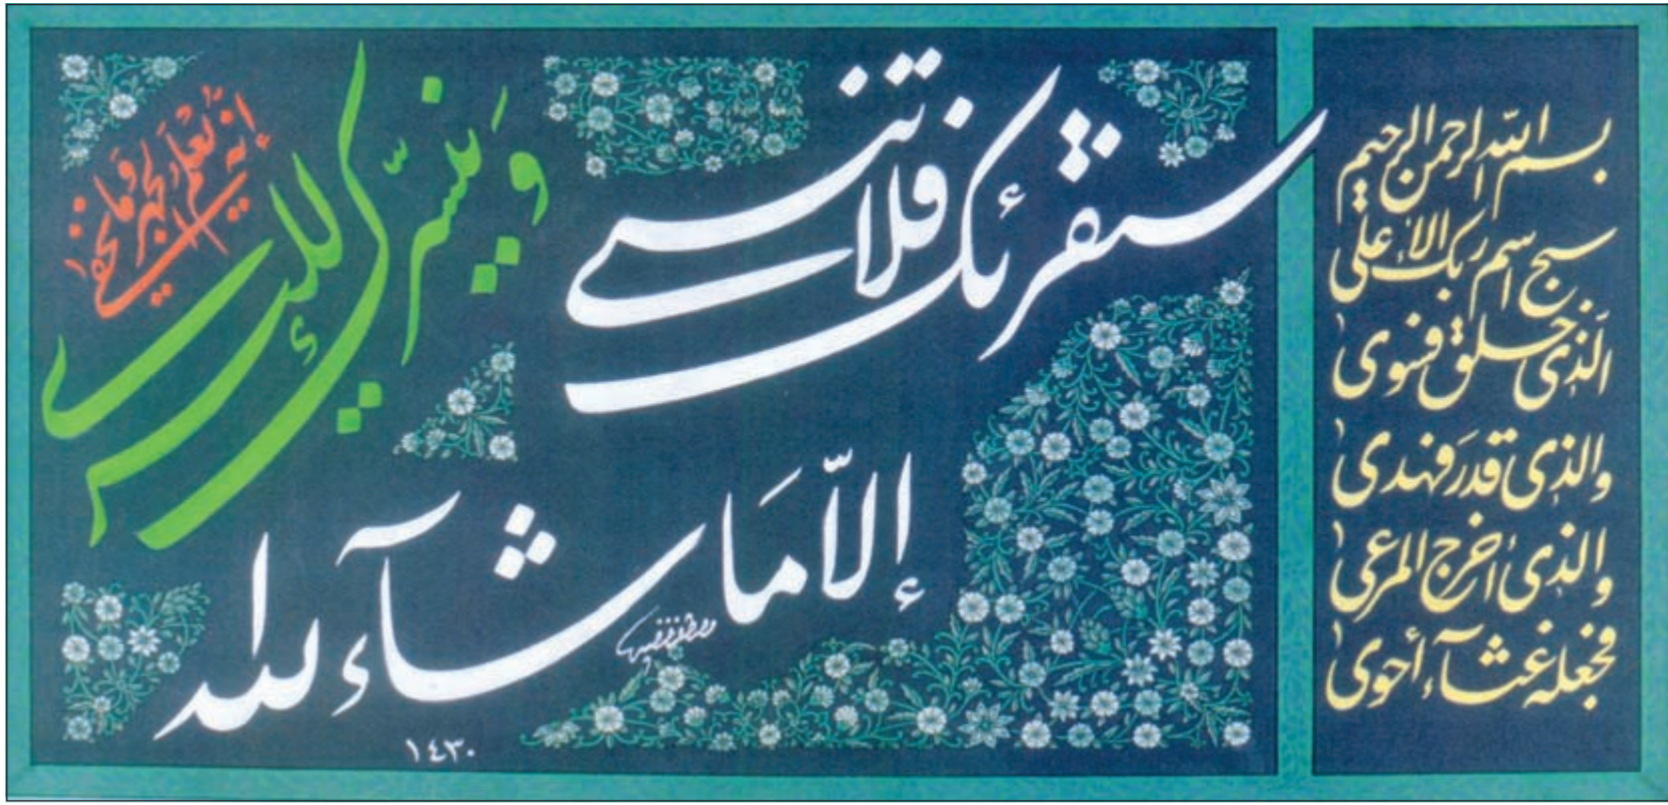 بسم الله الرحمن الرحيم
سبح اسم ربك الأعلى
الذى خلق فسوى
والذى قدر فهدى
والذى أخرج المرعى
فجعله غثآء أحوى
سنقرئك فلا تنسى
إلا ما شآء الله
إنه يعلم الجهر وما يخفى
ونيسرك لليسرى
١٤٣٠